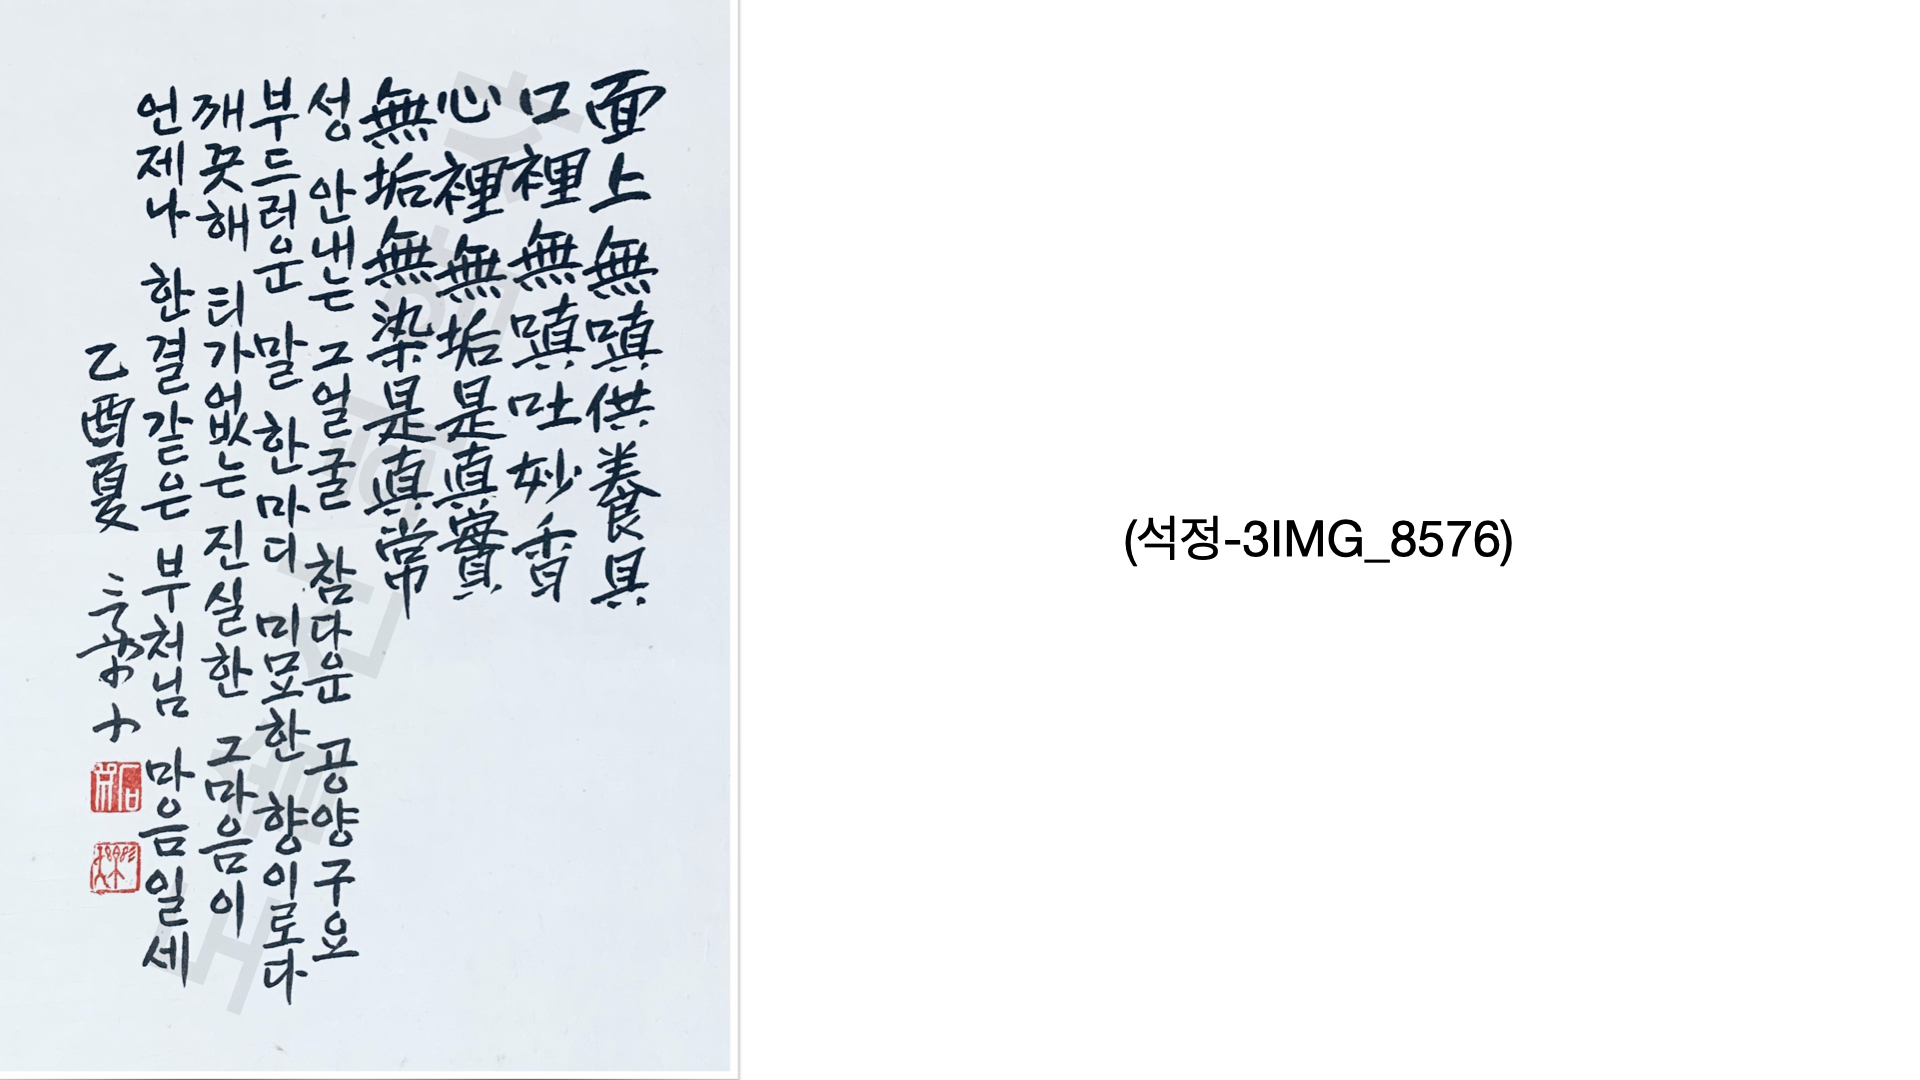 面上無嗔供養具
口裡無嗔吐妙香
心裡無垢是真實
無垢無染是真常
성 안내는 그얼굴 참다운 공양구요
부드러운 말 한마디 미묘한 향이로다
깨끗해 티가없는 진실한 그마음이
언제나 한결같은 부처님 마음일세
乙酉夏
(석정-3IMG_8576)